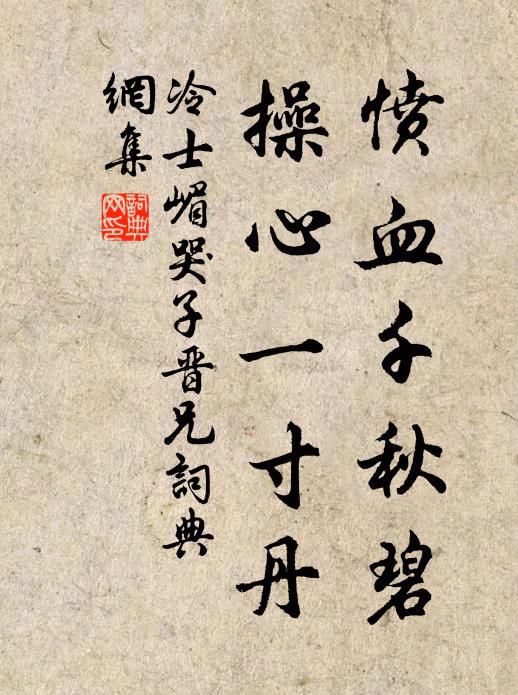 憤血千秋碧
操心一寸丹
冷士嵋哭子晋兄詞典
網集
詞典
网印